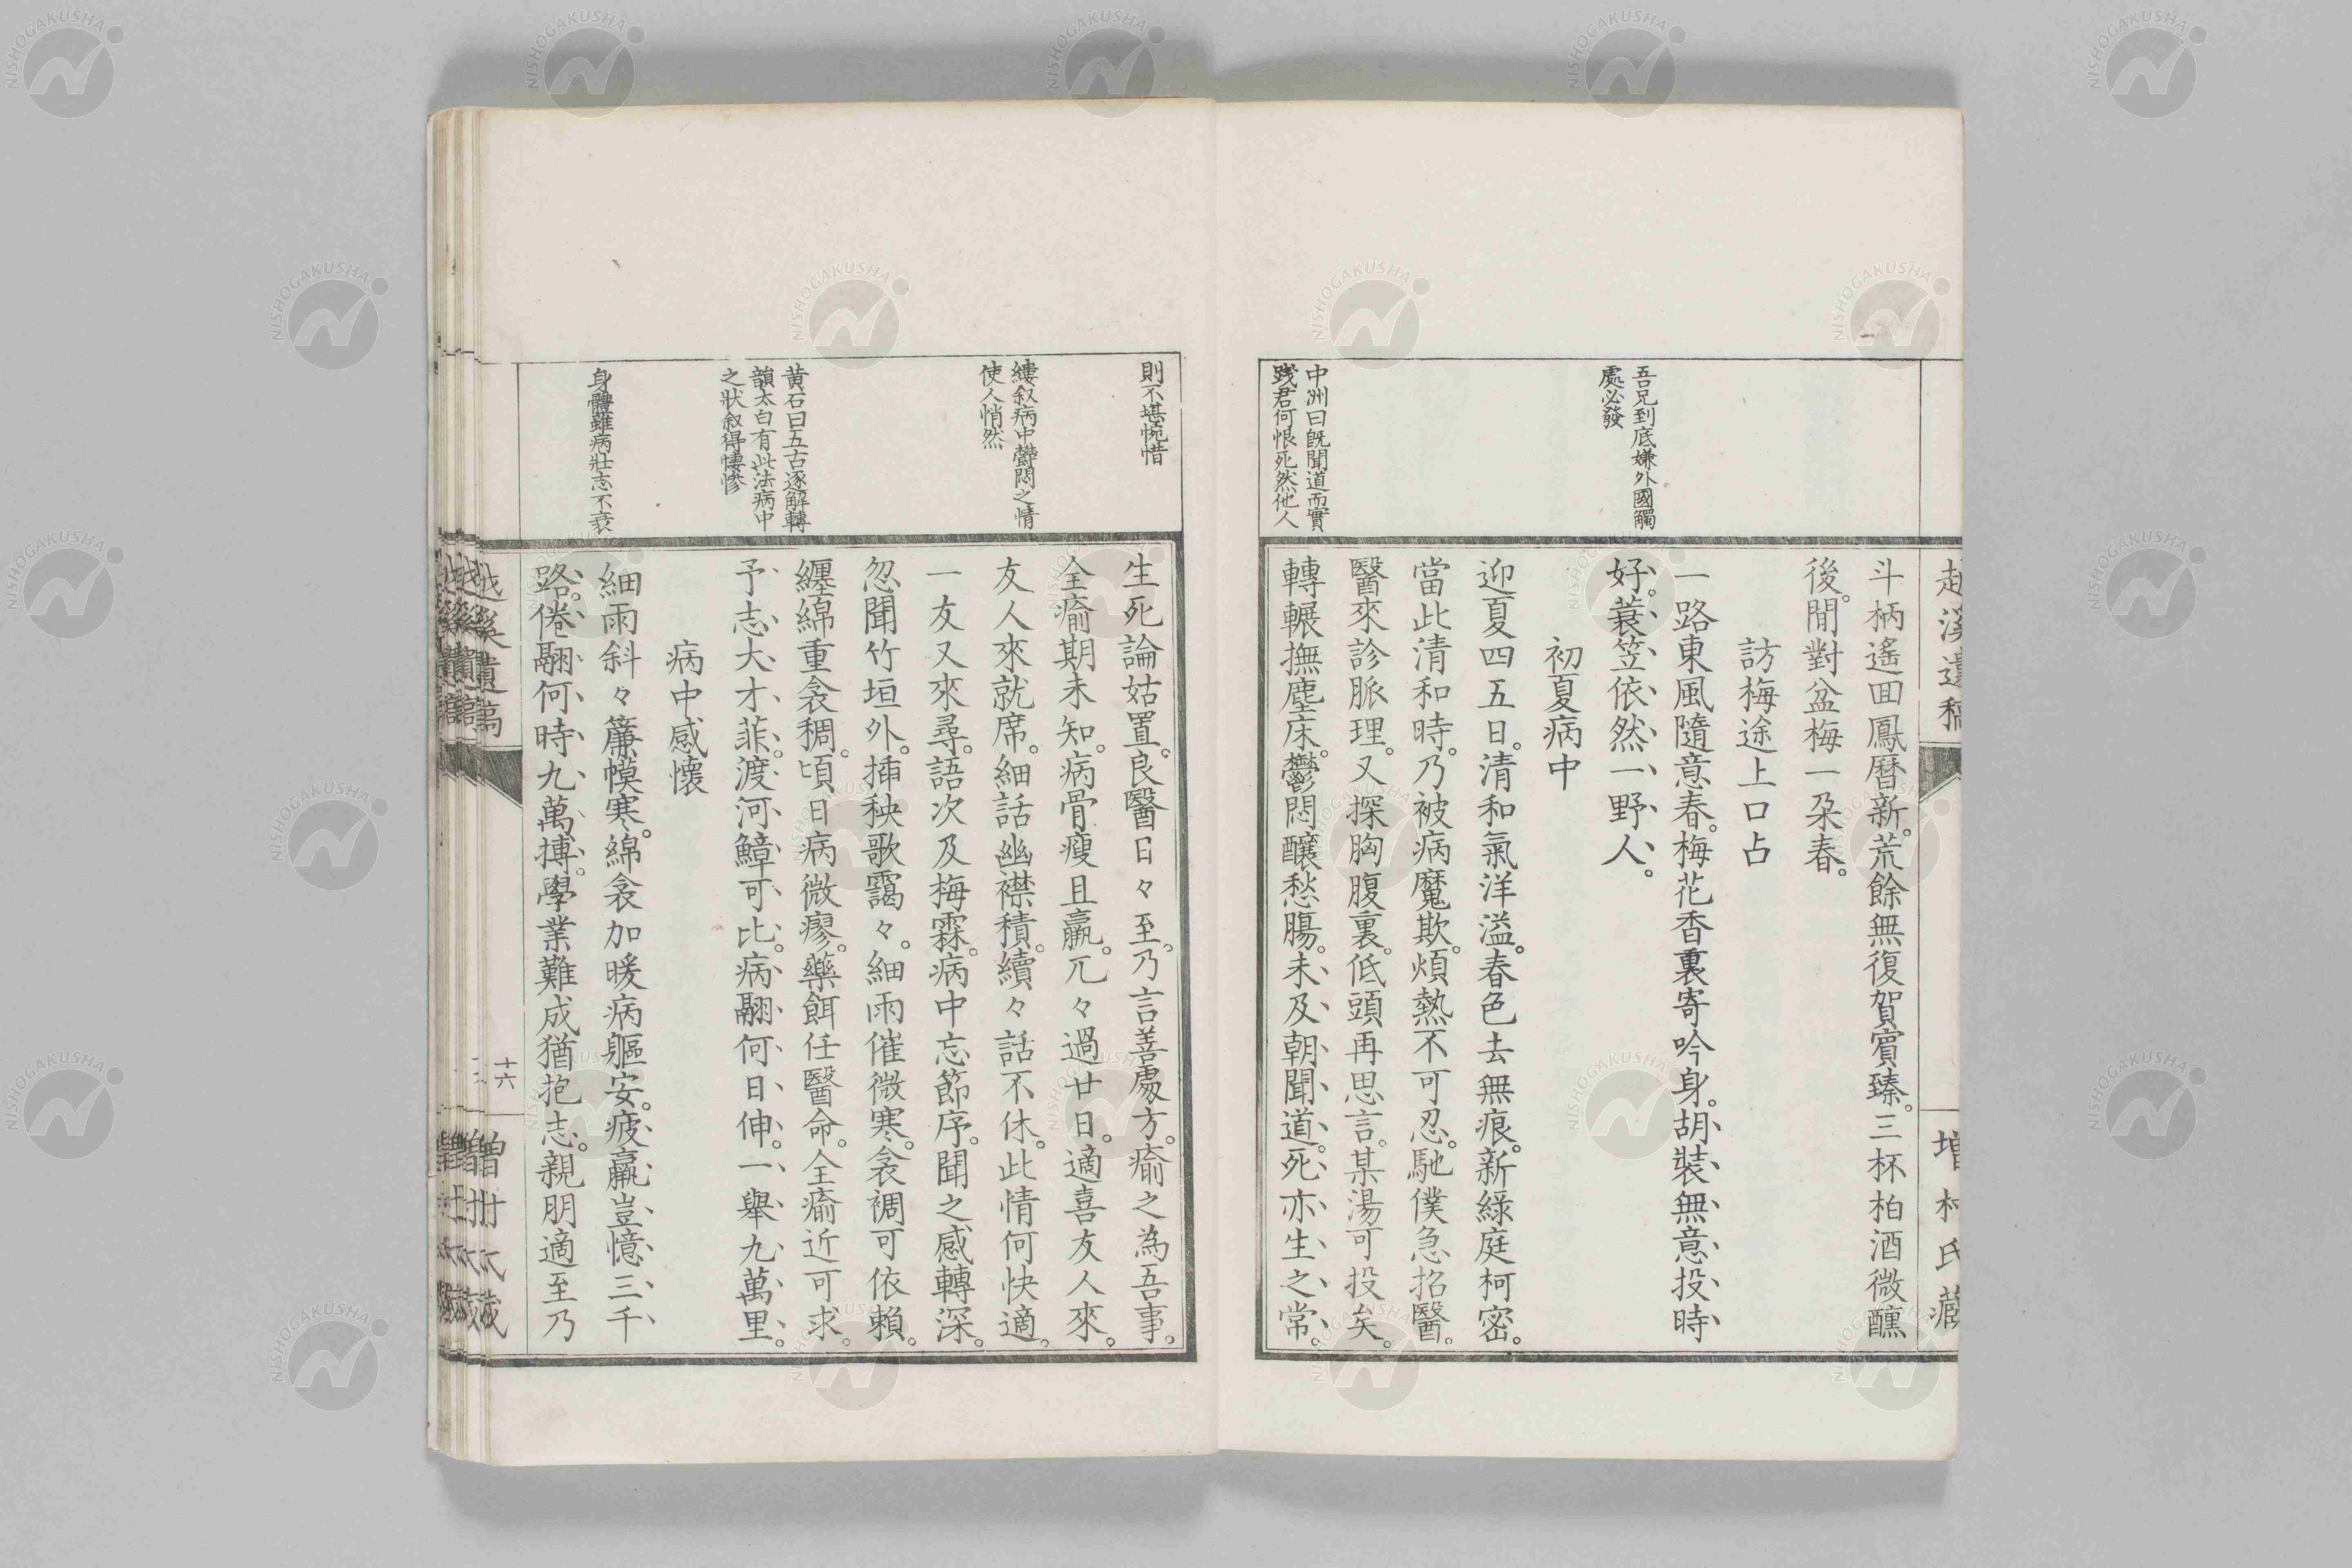 越溪遺稿
增村氏藏
吾兄到底嫌外國觸
處必發
中洲曰既聞道而實
踐君何恨死然他人
斗柄遙回鳳曆新。荒餘無復賀賓臻。三杯柏酒微醺
後。閒對盆梅一朶春。
訪梅途上口占
一路東風隨意春。梅花香裏寄吟身。胡裝無意投時
好。蓑笠依然一野人。
初夏病中
迎夏四五日。清和氣洋溢。春色去無痕。新綠庭柯密。
當此清和時。乃被病魔欺。煩熱不可忍。馳僕急招醫。
醫來診脈理。又探胸腹裏。低頭再思言。某湯可投矣。
轉輾撫塵床。鬱悶釀愁膓。未及朝聞道。死亦生之常。
則不堪惋惜
縷叙病中鬱悶之情
使人悄然
黄石曰五古逐解轉
韻太白有此法病中
之狀叙得悽慘
身體雖病壯志不衰
生死論姑置。良醫日々至。乃言善處方。瘉之為吾事。
全瘉期未知。病骨瘦且羸。兀々過廿日。適喜友人來。
友人來就席。細話幽襟積。續々話不休。此情何快適。
一友又來尋。語次及梅霖。病中忘節序。聞之感轉深。
忽聞竹垣外。挿秧歌靄々。細雨催微寒。衾裯可依賴。
纏綿重衾稠。頃日病微瘳。藥餌任醫命。全瘉近可求。
予志大才菲。渡河鱆可比。病翮何日伸。一舉九萬里。
病中感懷
細雨斜々簾幙寒。綿衾加暖病軀安。疲羸豈憶三千
路。倦翮何時九萬摶。學業難成猶抱志。親朋適至乃
越溪遺稿
十六
增村氏藏